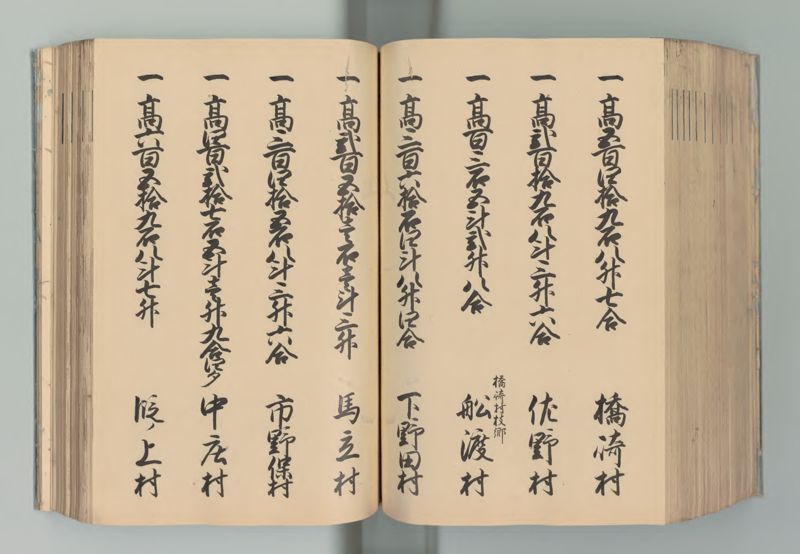 一 高五百四拾九石八升七合 橋崎村
一 高弐百拾九石八斗三升六合 佐野村
橋崎村枝郷
一 高百三石五斗弐升八合 船渡村
一 高三百六拾石四斗八升四合 下野田村
一 高弐百五拾壱石壱斗三升 馬立村
一 高三百四拾五石八斗三升六合 市野保村
一 高四百弐拾七石五斗壱升九合四夕 中庄村
一 高六百五拾九石八斗七升 上村